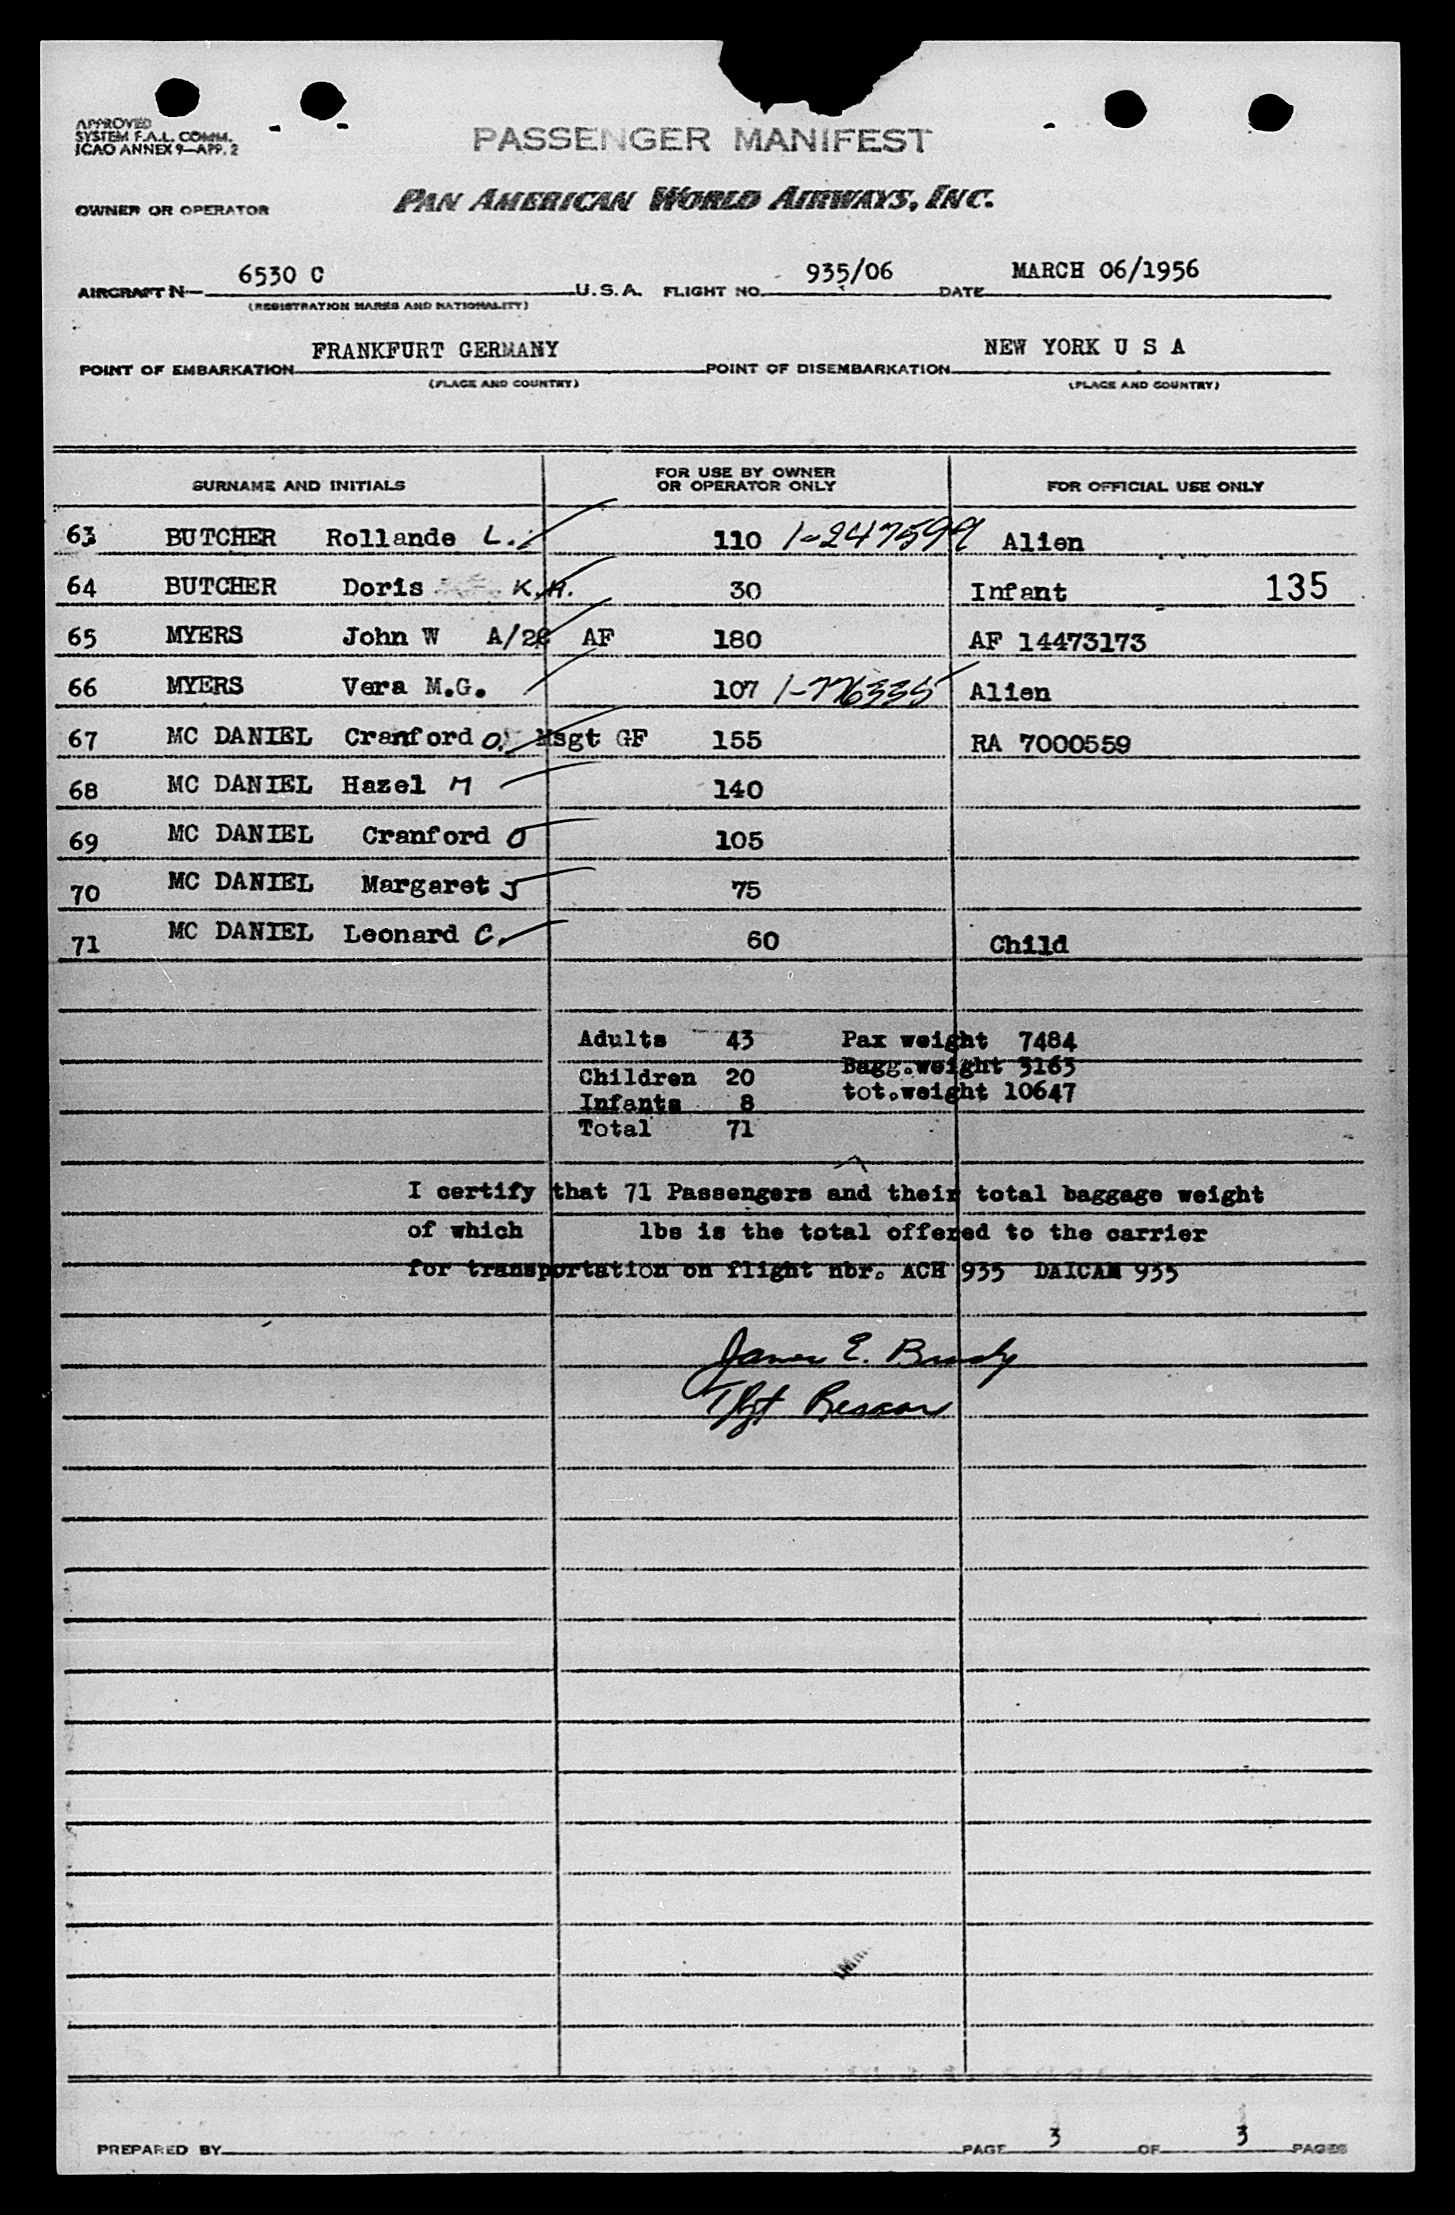 APPROVED
SYSTEM F.A.L. COMM.
ICAO ANNEX 9—APP. 2
PASSENGER MANIFEST
OWNER OR OPERATOR PAN AMERICAN WORLD AIRWAYS, INC.
AIRCRAFT N— 6530 C U.S.A. FLIGHT NO. 935/06 DATE MARCH 06/1956
(REGISTRATION MARKS AND NATIONALITY)
POINT OF EMBARKATION FRANKFURT GERMANY POINT OF DISEMBARKATION NEW YORK U S A
(PLACE AND COUNTRY) (PLACE AND COUNTRY)
SURNAME AND INITIALS FOR USE BY OWNER OR OPERATOR ONLY FOR OFFICIAL USE ONLY
63 BUTCHER Rollande L. 110 1-247599 Alien
64 BUTCHER Doris K.H. 30 Infant 135
65 MYERS John W A/2c AF 180 AF 14473173
66 MYERS Vera M.G. 107 1-776335 Alien
67 MC DANIEL Cranford O. Msgt GF 155 RA 7000559
68 MC DANIEL Hazel M 140
69 MC DANIEL Cranford O 105
70 MC DANIEL Margaret J 75
71 MC DANIEL Leonard C. 60 Child
Adults 43 Pax weight 7484
Children 20 Bagg.weight 3163
Infants 8 tot.weight 10647
Total 71
I certify that 71 Passengers and their total baggage weight
of which lbs is the total offered to the carrier
for transportation on flight nbr. ACH 935 DAICAM 935
James E. Brady
PREPARED BY PAGE 3 OF 3 PAGES